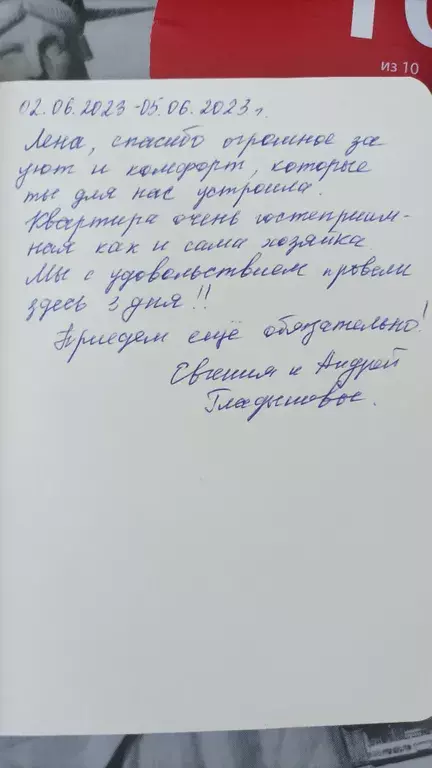 10
из 10
02.06.2023-05.06.2023г.
Лена, спасибо огромное за
уют и комфорт, которые
ты для нас устроила.
Квартира очень гостеприим-
ная как и сама хозяйка.
Мы с удовольствием провели
здесь 3 дня!!
Приедем ещё обязательно!
Евгения и Андрей
Гладышовы.